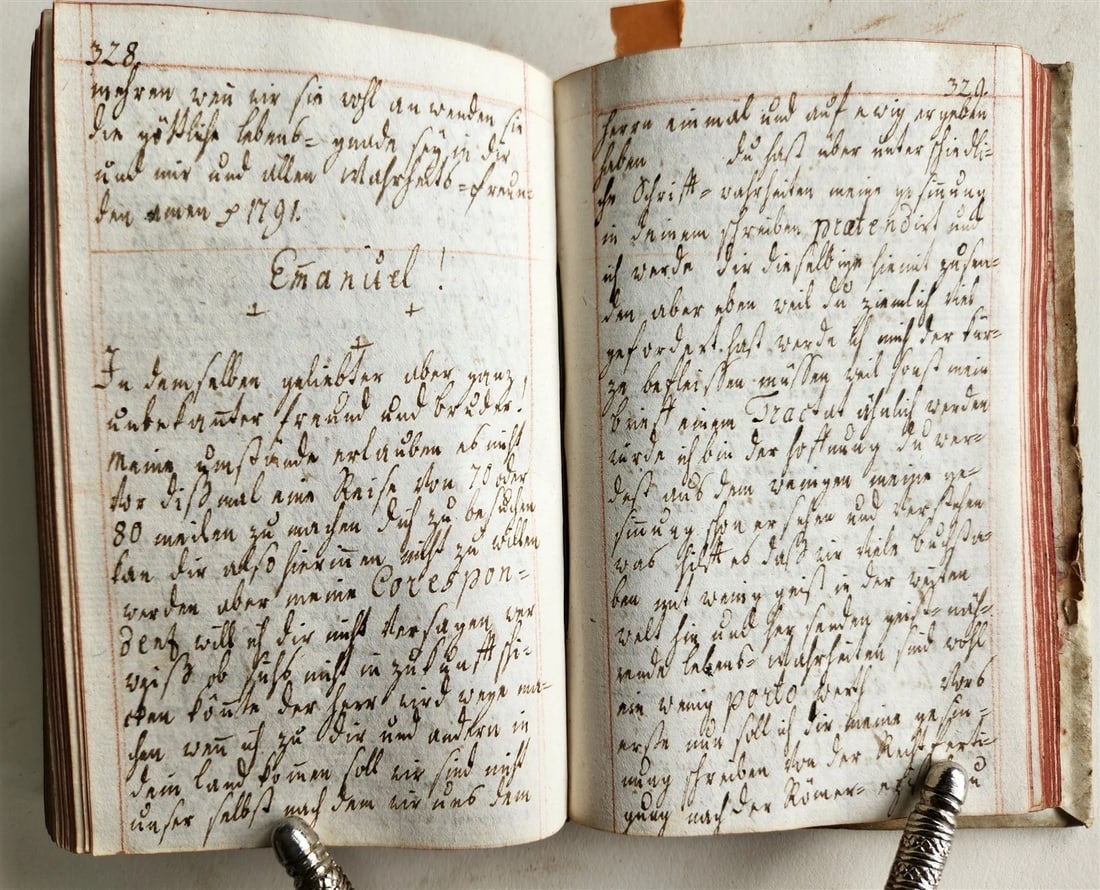 328.
mehren wen̄ wir sie wohl anwenden sie
die göttliche lebens= gnade sey in dir
und mir und allen Wahrheits=freun=
den amen 1791.
Em̄anuel !
In demselben geliebter aber ganz
unbekan̄ter freund und bruder!
Meine umstände erlauben es nicht
vor dißmal eine Reise von 70 oder
80 meilen zu machen dich zu besuchen
kan dir also hierin̄en nicht zu willen
werden aber meine Corespon=
denz will ich dir nicht versagen wer
weiß ob sichs nicht in zukunfft schi=
cken kön̄te der herr wird wege ma=
chen wen̄ ich zu dir und andern in
dein land kom̄en soll wir sind nicht
unser selbst nach dem wir uns dem
329.
herrn einmal und auf ewig ergeben
haben du hast über unterschiedli=
che Schrifft= wahrheiten meine gesin̄ung
in deinem schreiben prætendirt und
ich werde dir dieselbige hiemit zusen=
den aber eben weil du ziemlich viel
gefordert hast werde ich mich der kür=
ze befleissen müssen weil sonst mein
brieff einem Tractat ähnlich werden
würde ich bin der hoffnung du wer=
dest aus dem wenigen meine ge=
sin̄ung schon ersehen und verstehen
was hilfft es daß wir viele buchsta=
ben mit wenig geist in der weiten
welt hin und her senden geist= näh=
rende lebens= wahrheiten sind wohl
ein wenig porto werth vors
erste nun soll ich dir meine gesin=
nung schreiben von der Rechtferti=
gung nach der Römer=